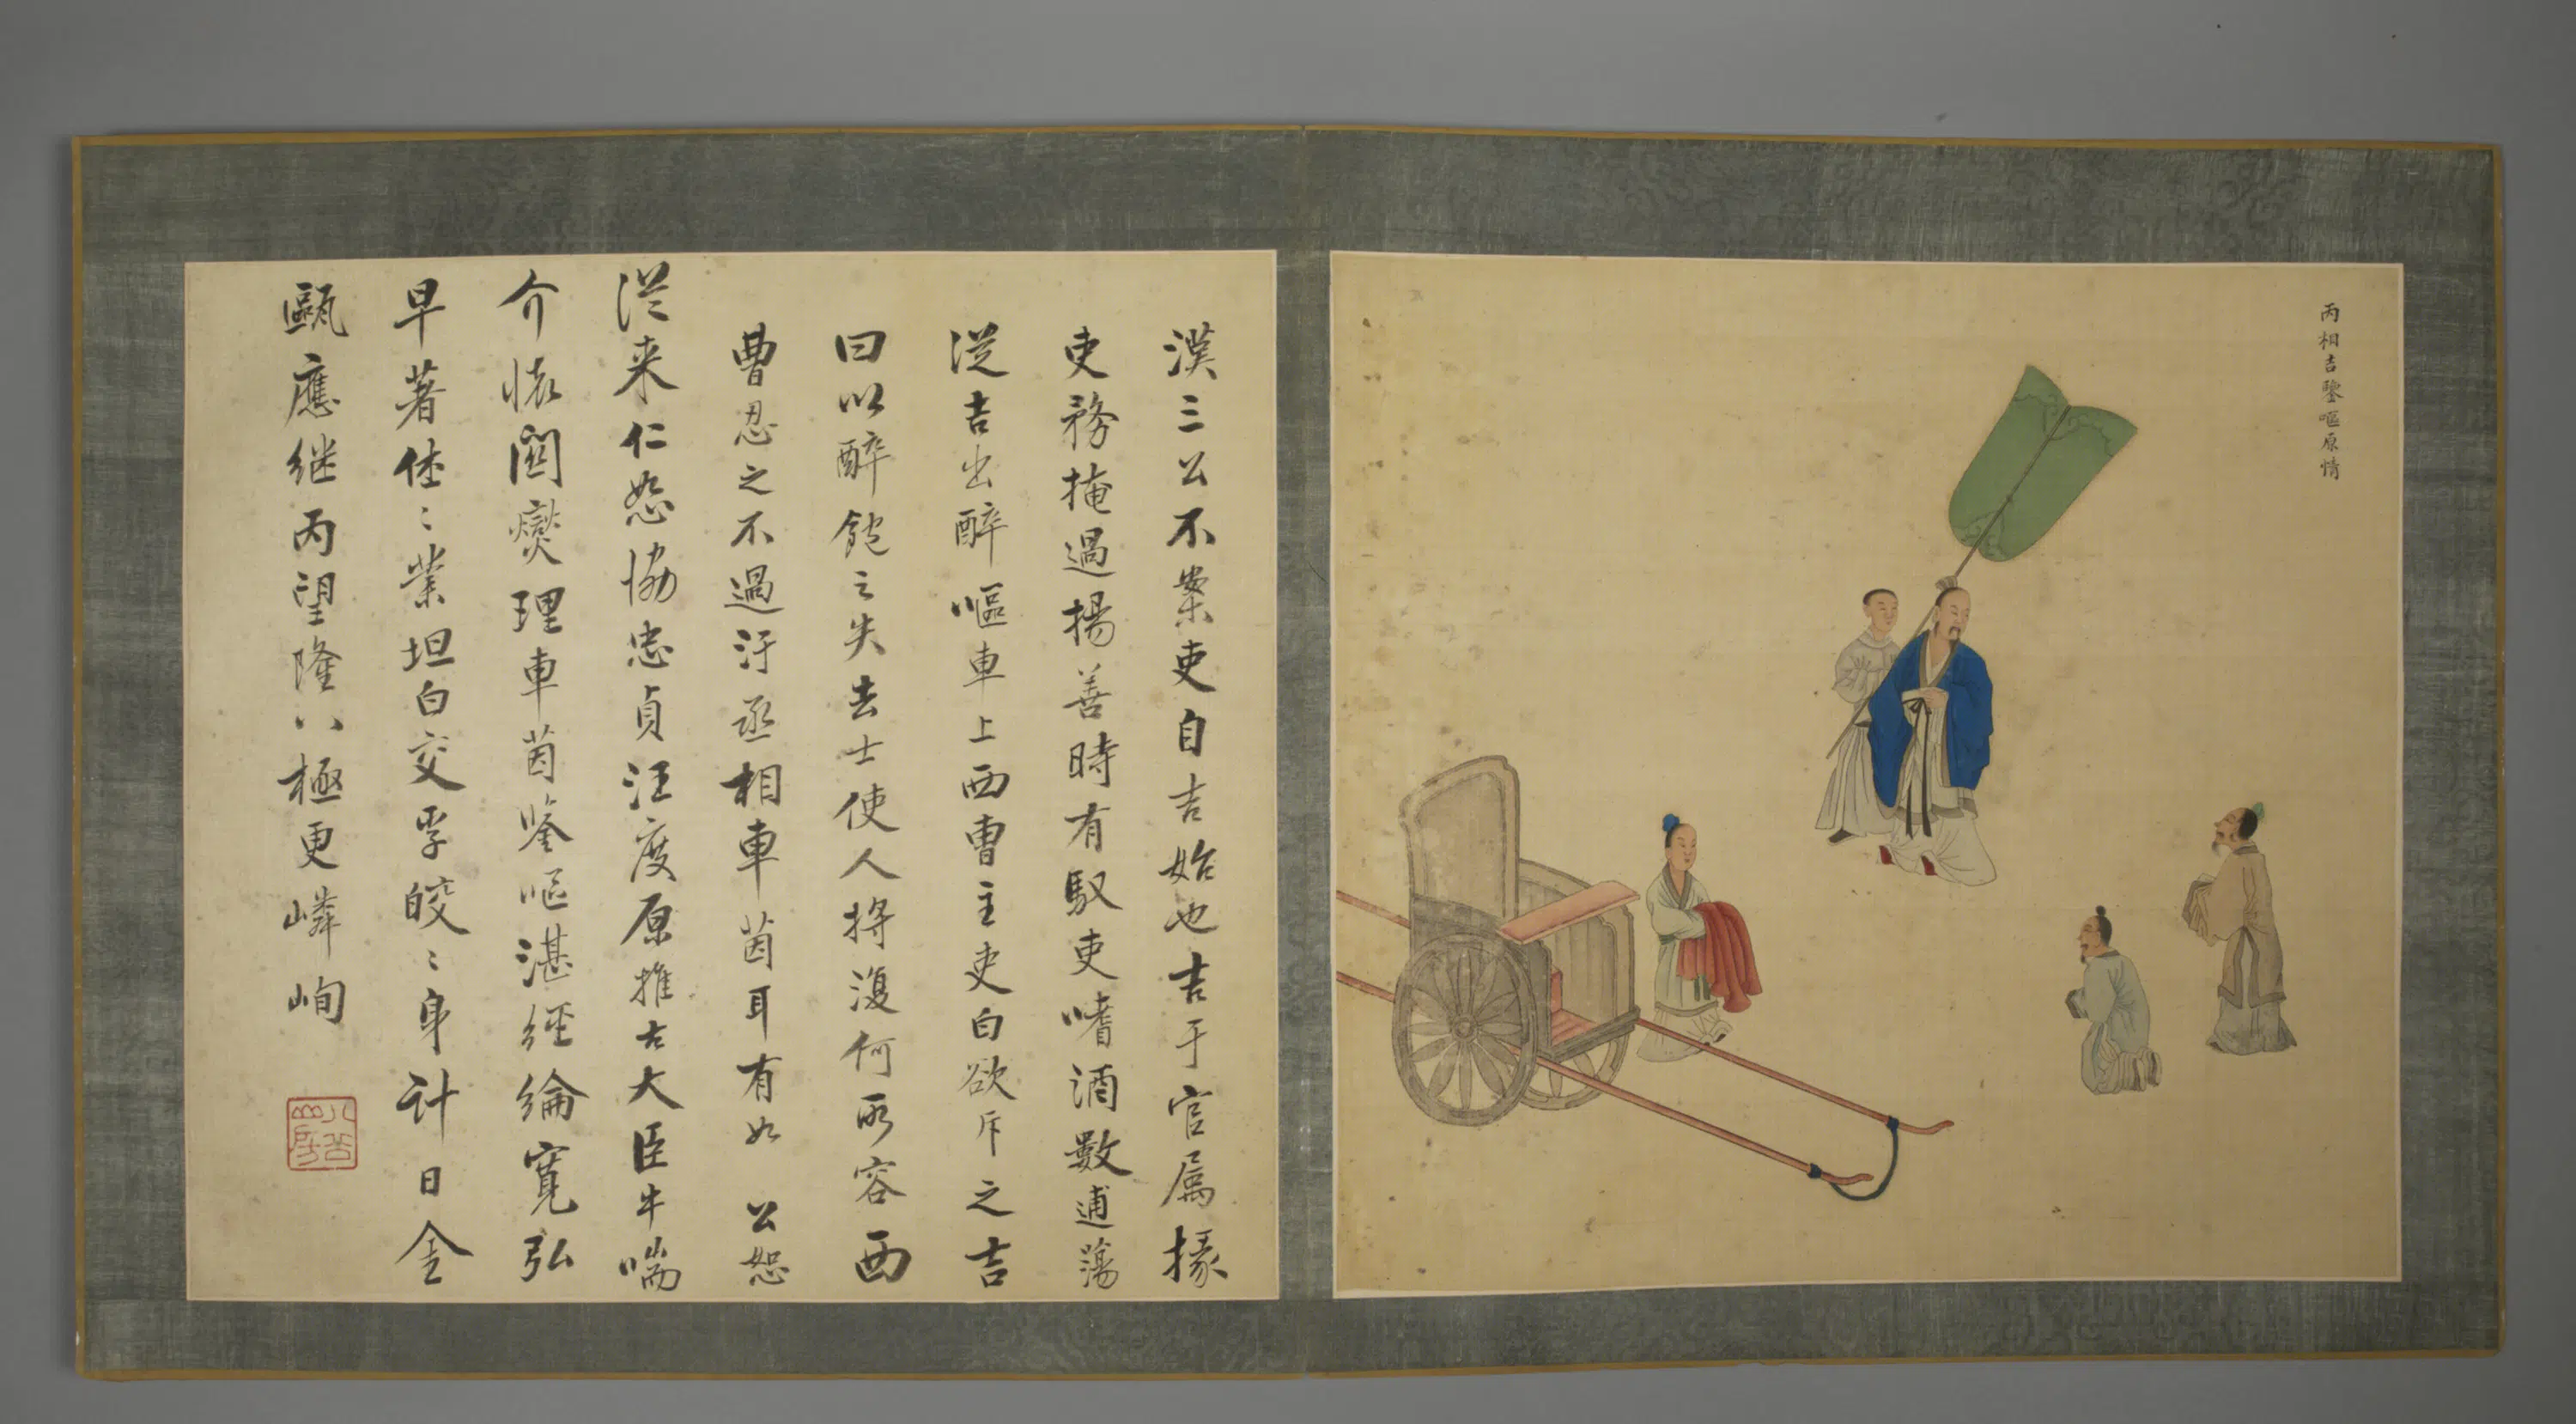 丙相吉鑒嘔原情
漢三公不案吏自吉始也吉于官屬掾
吏務掩過揚善時有馭吏嗜酒數逋蕩
從吉出醉嘔車上西曹主吏白欲斥之吉
曰以醉飽之失去士使人將復何所容西
曹忍之不過汙丞相車茵耳有如 公恕
從来仁恕協忠貞汪度原推古大臣牛喘
介懷関燮理車茵鑒嘔湛經綸寬弘
早著佳〻業坦白交孚皎〻身計日金
甌應继丙望隆八極更嶙峋